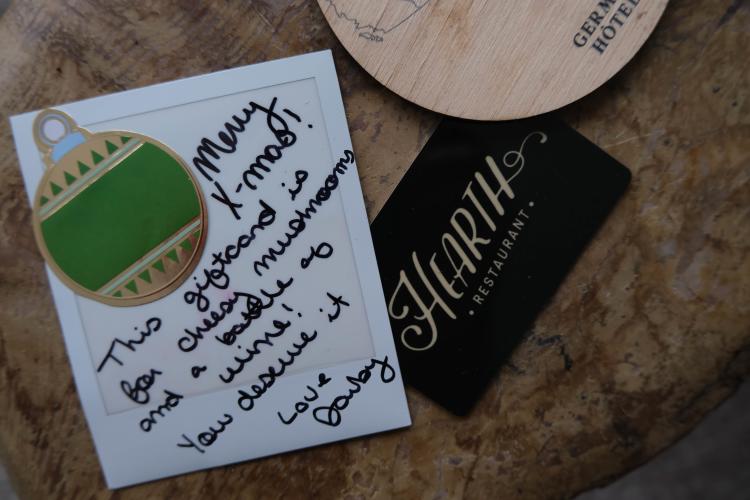 Merry
X-mas!
This giftcard is
for cheesy mushrooms
and a bottle of
wine!
You deserve it
Love
Darby
HEARTH
• RESTAURANT •
GERM
HÔTEL